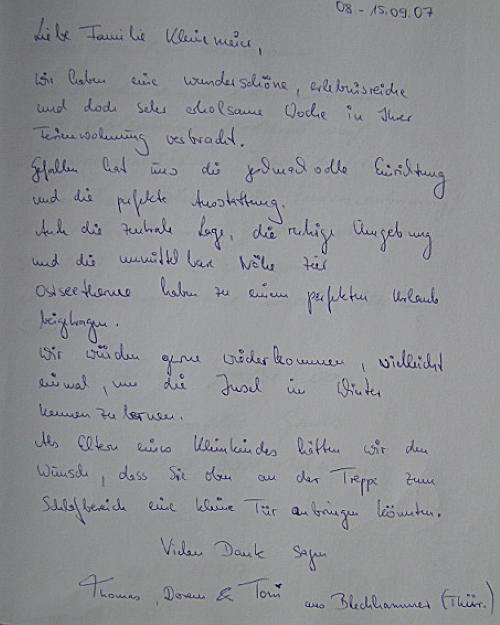 08 - 15.09.07
Liebe Familie Kleinmeier,
wir haben eine wunderschöne, erlebnisreiche
und doch sehr erholsame Woche in Ihrer
Ferienwohnung verbracht.
Gefallen hat uns die geschmackvolle Einrichtung
und die perfekte Ausstattung.
Auch die zentrale Lage, die ruhige Umgebung
und die unmittelbare Nähe zur
Ostseetherme haben zu einem perfekten Urlaub
beigetragen.
Wir würden gerne wiederkommen, vielleicht
einmal, um die Insel im Winter
kennen zu lernen.
Als Eltern eines Kleinkindes hätten wir den
Wunsch, dass Sie oben an der Treppe zum
Schlafbereich eine kleine Tür anbringen könnten.
Vielen Dank sagen
Thomas, & Toni aus Blechhammer (Thür.)